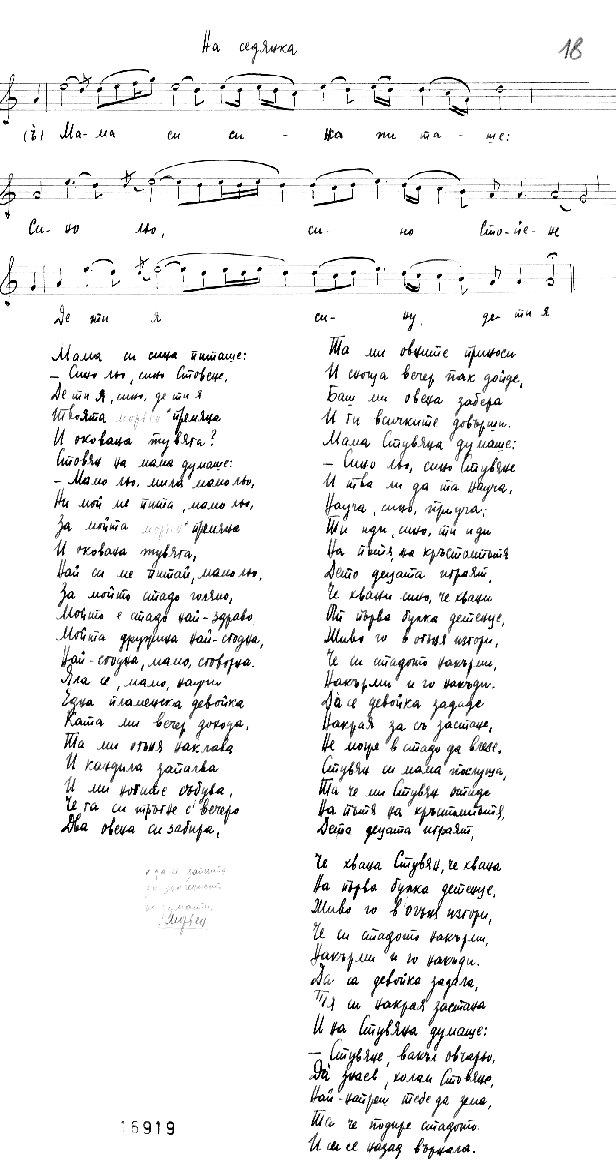 На седянка
18
(Ѣ) Ма-ма си си - на пи та - ше:
Си- но льо, си- но Сто-йе- не
Де ти я си- ну, де- ти я
Мама си сина питаше:
– Сино льо, сино Стовене,
Де ти я, сино, де ти я
Твоята премяна
И окована тувяга?
Стовян на мама думаше:
– Мамо льо, мила мамо льо,
Ни мой ме пита, мамо льо,
За мойта премяна
И окована тувяга,
Най си ме питай, мамо льо,
За мойто стадо голямо,
Мойто е стадо най-здраво.
Мойта дружина най-сгодна,
Най-сгодна, мамо, сговорна.
Яла се, мамо, научи
Една пламенска девойка
Ката ми вечер дохода,
Та ми огъня наклава
И кандила запалва
И ми събува,
Че га си тръгне с вечеро
Два овена си забира,
Та ми овните приноси
И сноща вечер пак дойде,
Баш ми овена забера
И ги всичките довърши.
Мама Стувяна думаше:
– Сино льо, сино Стувяне
И тва ли да та науча,
Науча, сино, приуча:
Ти иди, сино, ти иди
На пътя, на кръстопътя
Дето децата играят,
Че хвани сино, че хвани
От първа булка детенце,
Живо го в огъня изгори,
Че си стадото накърми,
Накърми и го накади.
Да се девойка зададе
Накрая за съ застане,
Не може в стадо да влезе,
Стувян си мама послуша,
Та че ми Стувян отиде
На пътя на кръстопътя,
Дета децата играят,
Че хвана Стувян, че хвана
На първа булка детенце,
Живо го в огъня изгори,
Че си стадото накърми,
Накърми и го накади.
Да са девойка задала,
Тя си накрая застана
И на Стувяна думаше:
– Стувяне, вакъл овчарьо,
Да знаев, холам Стовяне,
Най-напреш тебе да зема,
Та че подире стадото.
И си се назад върнала.
16919